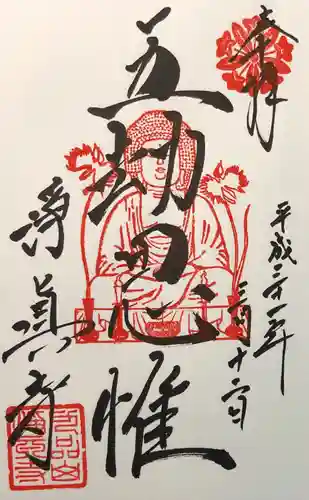 奉拝
平成二十一年
三月十六日
五劫思惟
淨真寺